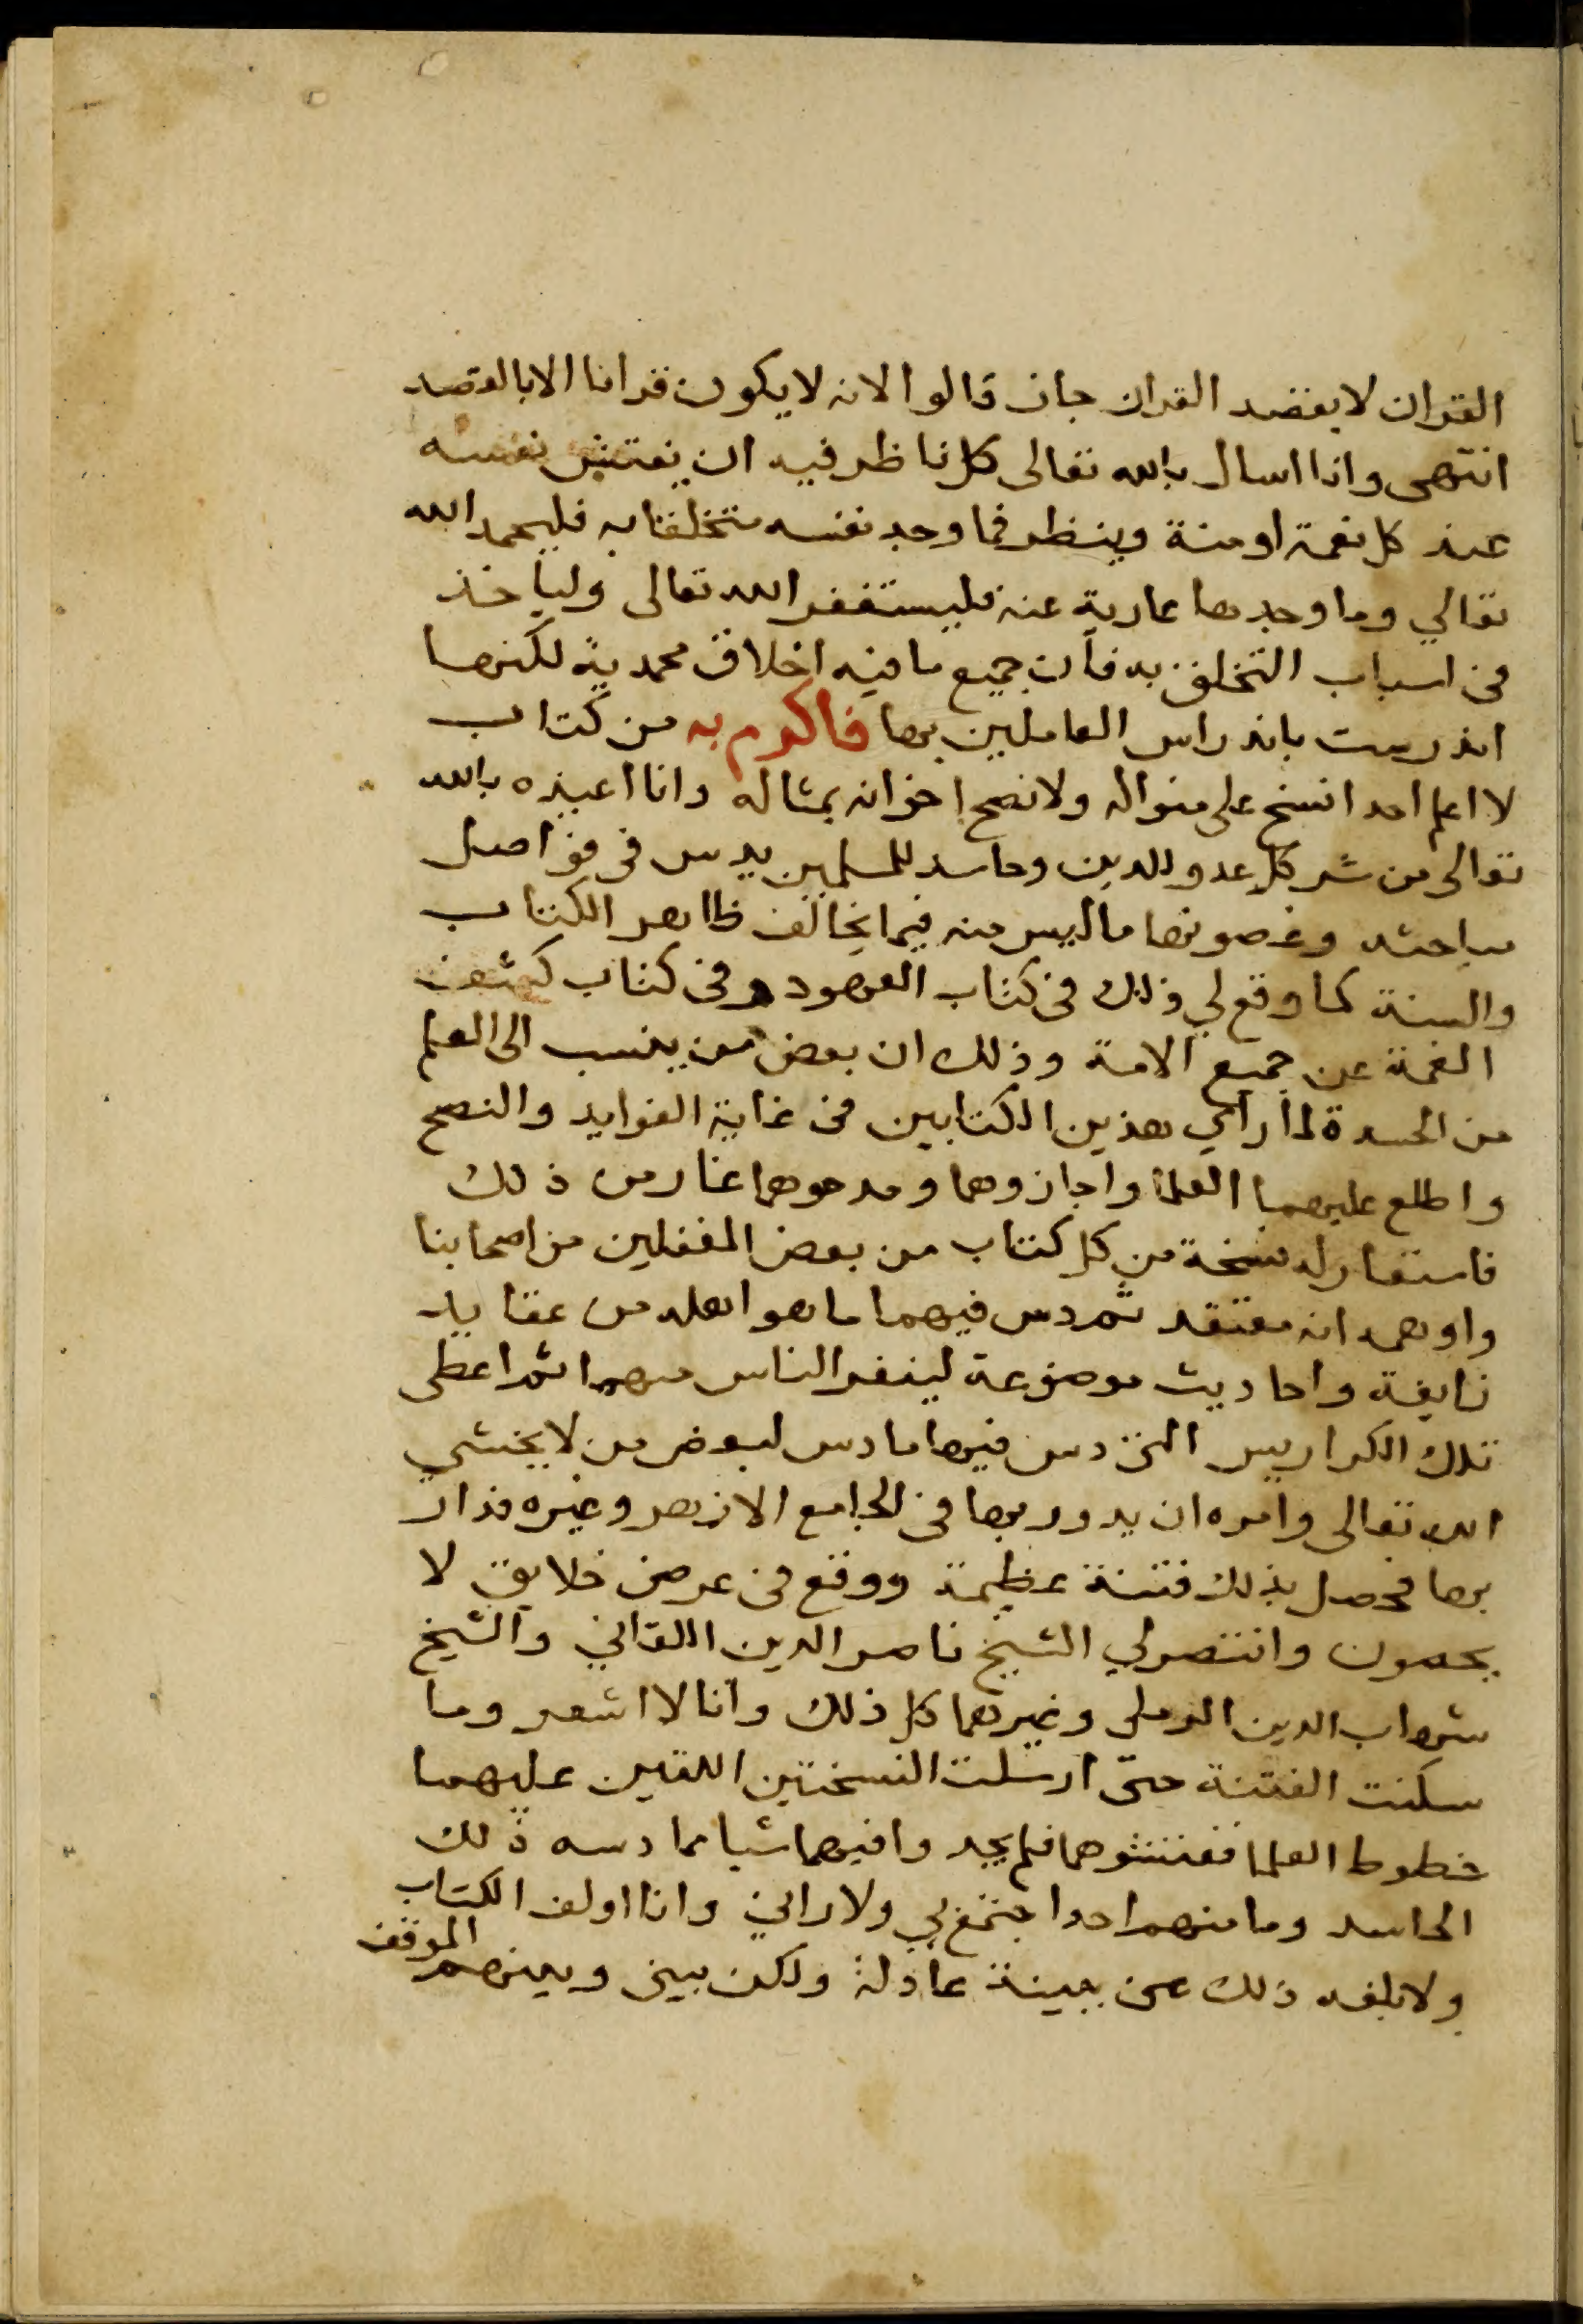 القران لا بقصد القران جاز قالوا لانه لا يكون قرانا الا بالقصد
انتهى وانا اسال بالله تعالى كل ناظر فيه ان يفتش نفسه
عند كل نعمة او منة وينظر فما وجد نفسه متخلقا به فليحمد الله
تعالي وما وجدها عارية عنه فليستغفر الله تعالى ولياخذ
فى اسباب التخلق به فان جميع ما فيه اخلاق محمدية لكنها
اندرست باندراس العاملين بها فاكرم به من كتاب
لا اعلم احدا نسخ على منواله ولا نصح اخوانه بمثاله وانا اعيذه بالله
تعالى من شر كل عدو للدين وحاسد للمسلمين يدس فى فواصل
مباحثه وغصونها ما ليس منه فيما يخالف ظاهر الكتاب
والسنة كما وقع لي ذلك فى كتاب العهود وفى كتاب كشف
الغمة عن جميع الامة وذلك ان بعض من ينسب الى العلم
من الحسدة لما راي هذين الكتابين فى غاية الفوايد والنصح
واطلع عليهما العلما واجازوهما ومدحوهما غار من ذلك
فاستعار له نسخة من كل كتاب من بعض المغفلين من اصحابنا
واوهمه انه معتقد ثم دس فيهما ما هو اهله من عقايد
زايفة واحاديث موضوعة لينفر الناس منهما ثم اعطى
تلك الكراريس التى دس فيها ما دس لبعض من لا يخشي
الله تعالى وامره ان يدور بها فى الجامع الازهر وغيره فدار
بها فحصل بذلك فتنة عظيمة ووقع فى عرضى خلايق لا
يحصون وانتصر لي الشيخ ناصر الدين اللقاني والشيخ
شهاب الدين الرملى وغيرهما كل ذلك وانا لا اشعر وما
سكنت الفتنة حتى ارسلت النسختين اللتين عليهما
خطوط العلما ففتشوهما فلم يجدوا فيهما شيا مما دسه ذلك
الحاسد وما منهم احدا جتمع بي ولا راني وانا اولف الكتاب
ولا بلغه ذلك عنى ببينة عادلة ولكن بينى وبينهم الموقف